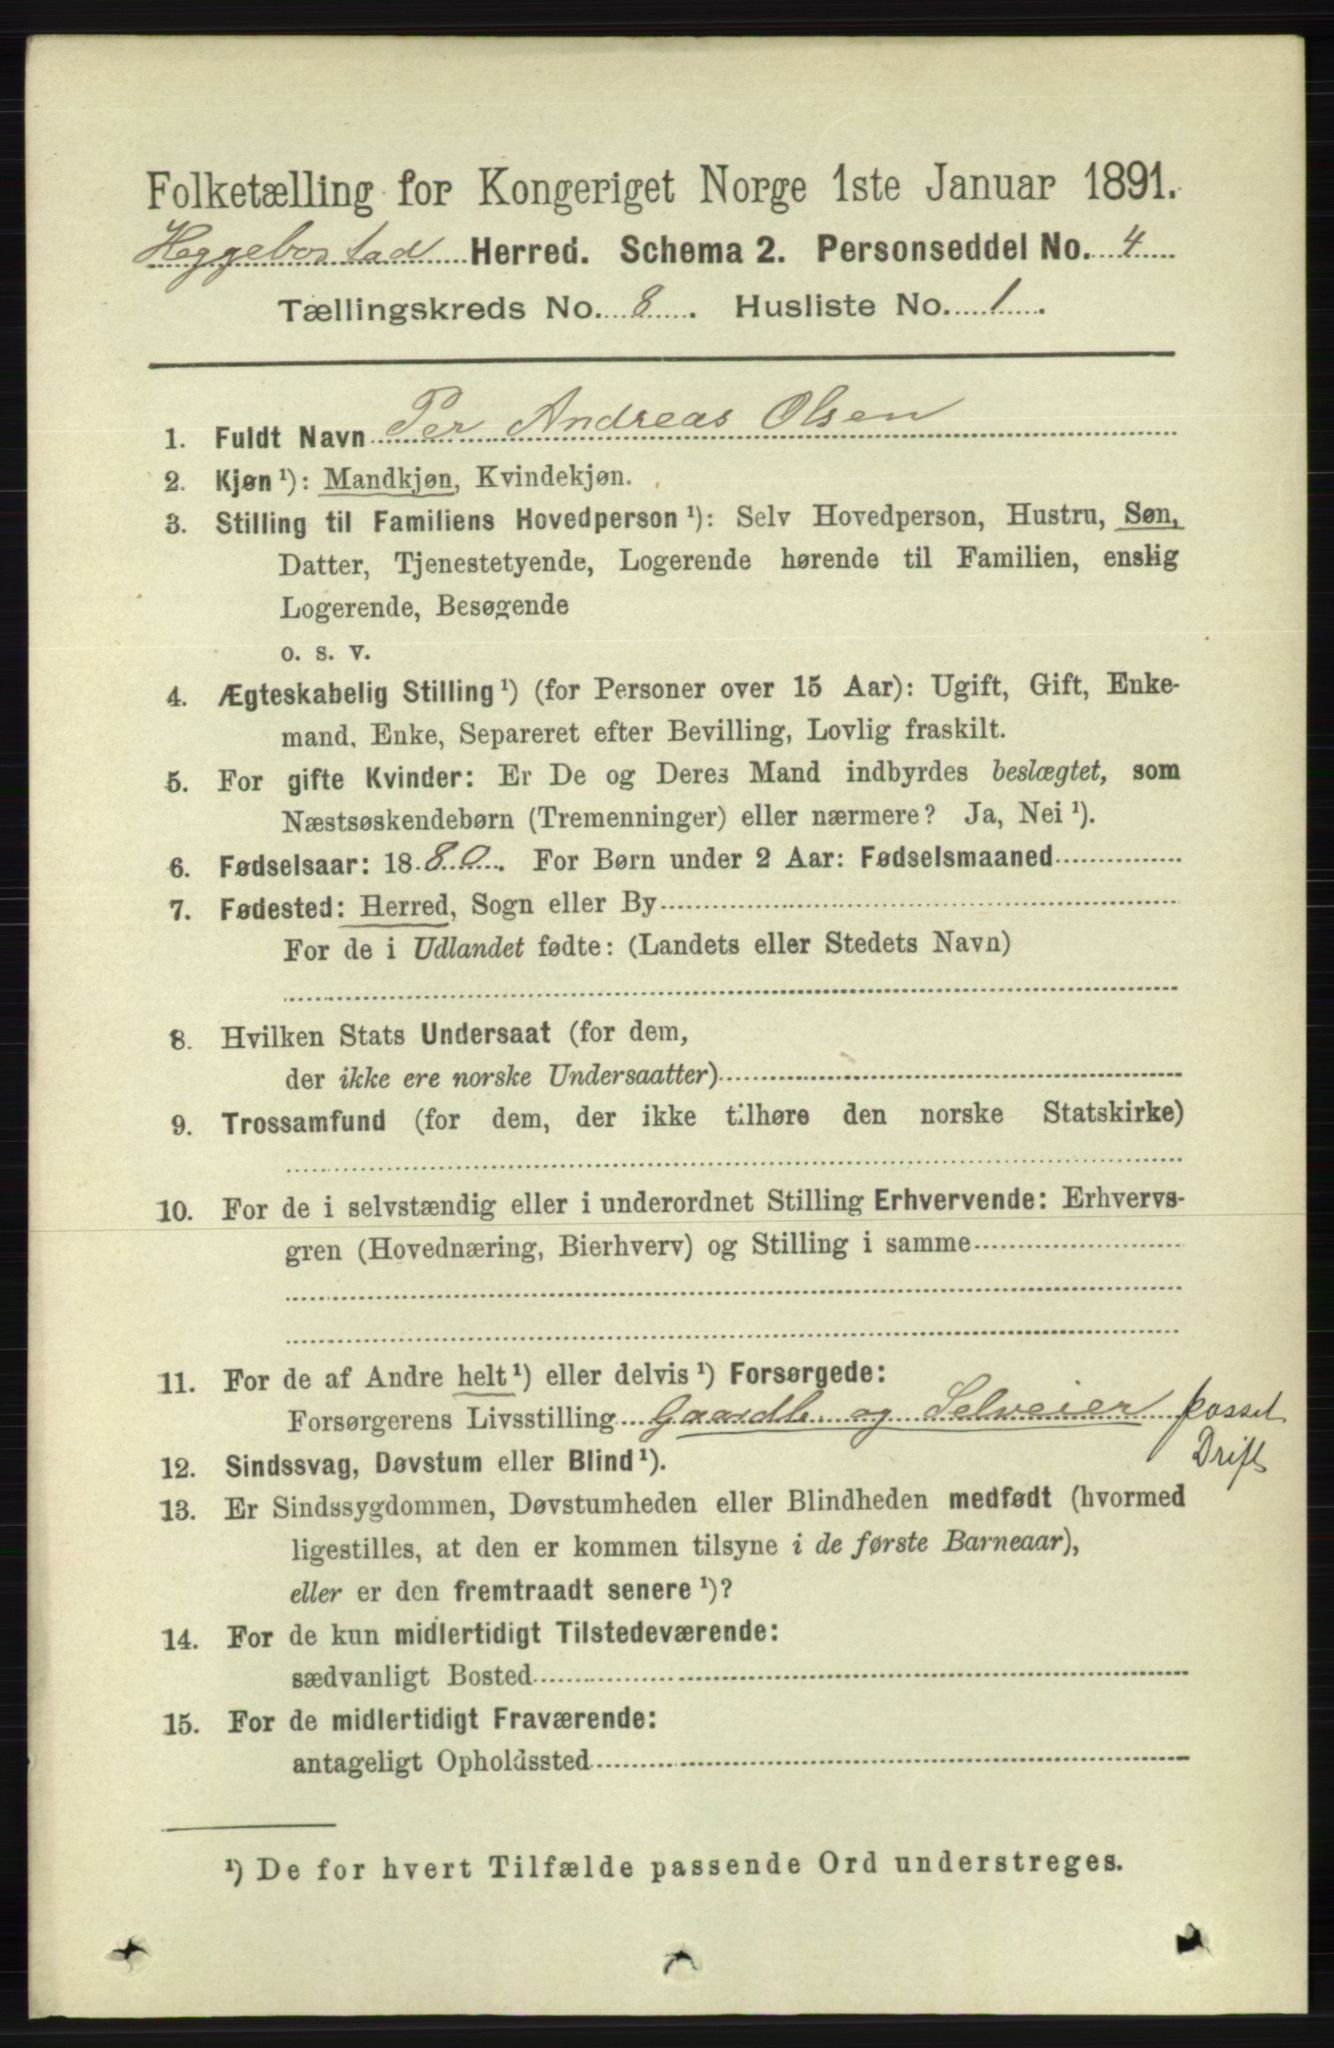 Folketælling for Kongeriget Norge 1ste Januar 1891.
Heggebostad Herred. Schema 2. Personseddel No. 4
Tællingskreds No. 8. Husliste No. 1.
1. Fuldt Navn Per Andreas Olsen
2. Kjøn ¹): Mandkjøn, Kvindekjøn.
3. Stilling til Familiens Hovedperson ¹): Selv Hovedperson, Hustru, Søn,
Datter, Tjenestetyende, Logerende hørende til Familien, enslig
Logerende, Besøgende
o. s. v.
4. Ægteskabelig Stilling ¹) (for Personer over 15 Aar): Ugift, Gift, Enke-
mand, Enke, Separeret efter Bevilling, Lovlig fraskilt.
5. For gifte Kvinder: Er De og Deres Mand indbyrdes beslægtet, som
Næstsøskendebørn (Tremenninger) eller nærmere? Ja, Nei ¹).
6. Fødselsaar: 1880. For Børn under 2 Aar: Fødselsmaaned
7. Fødested: Herred, Sogn eller By
For de i Udlandet fødte: (Landets eller Stedets Navn)
8. Hvilken Stats Undersaat (for dem,
der ikke ere norske Undersaatter)
9. Trossamfund (for dem, der ikke tilhøre den norske Statskirke)
10. For de i selvstændig eller i underordnet Stilling Erhvervende: Erhvervs-
gren (Hovednæring, Bierhverv) og Stilling i samme
11. For de af Andre helt ¹) eller delvis ¹) Forsørgede:
Forsørgerens Livsstilling Gaardb. og Selveier
Drift
12. Sindssvag, Døvstum eller Blind ¹).
13. Er Sindssygdommen, Døvstumheden eller Blindheden medfødt (hvormed
ligestilles, at den er kommen tilsyne i de første Barneaar),
eller er den fremtraadt senere ¹)?
14. For de kun midlertidigt Tilstedeværende:
sædvanligt Bosted
15. For de midlertidigt Fraværende:
antageligt Opholdssted
¹) De for hvert Tilfælde passende Ord understreges.